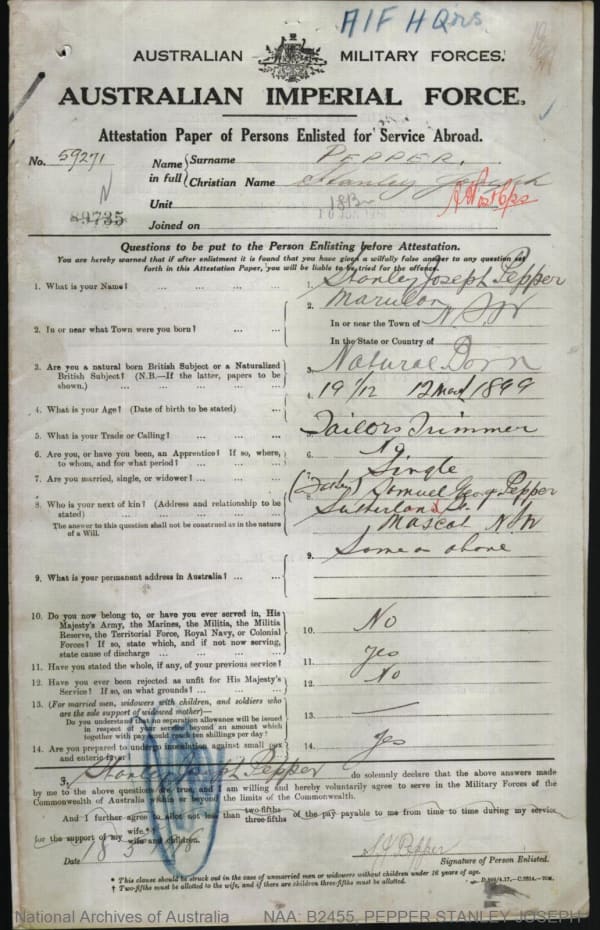 AIF H Qrs
AUSTRALIAN MILITARY FORCES.
AUSTRALIAN IMPERIAL FORCE.
Attestation Paper of Persons Enlisted for Service Abroad.
No. 59271
Name in full { Surname PEPPER.
Christian Name Stanley Joseph
Unit
89735
Joined on
Questions to be put to the Person Enlisting before Attestation.
You are hereby warned that if after enlistment it is found that you have given a wilfully false answer to any question set
forth in this Attestation Paper, you will be liable to be tried for the offence.
1. What is your Name? ... ... ... ... 1. Stanley Joseph Pepper
2. In or near what Town were you born? ... ... 2. Marulan
In or near the Town of N.S.W
In the State or Country of
3. Are you a natural born British Subject or a Naturalized
British Subject? (N.B.—If the latter, papers to be
shown.) ... ... ... ... ... 3. Natural Born
4. What is your Age? (Date of birth to be stated) ... 4. 19 1/12 12 Mar 1899
5. What is your Trade or Calling? ... ... ... Tailors Trimmer
6. Are you, or have you been, an Apprentice? If so, where,
to whom, and for what period? ... ... ... 6. No
7. Are you married, single, or widower? ... ... ... 7. Single
8. Who is your next of kin? (Address and relationship to be
stated) ... ... ... ... (Father) Samuel George Pepper
Sutherland St.
The answer to this question shall not be construed as in the nature
of a Will. Mascot N.S.W
9. What is your permanent address in Australia? ... ... 9. Same as above
10. Do you now belong to, or have you ever served in, His
Majesty's Army, the Marines, the Militia, the Militia
Reserve, the Territorial Force, Royal Navy, or Colonial
Forces? If so, state which, and if not now serving,
state cause of discharge ... ... ... ... 10. No
11. Have you stated the whole, if any, of your previous service? 11. Yes
12. Have you ever been rejected as unfit for His Majesty's
Service? If so, on what grounds? ... ... ... 12. No
13. (For married men, widowers with children, and soldiers who
are the sole support of widowed mother)—
Do you understand that no separation allowance will be issued
in respect of your service beyond an amount which
together with pay would reach ten shillings per day? 13. —
14. Are you prepared to undergo inoculation against small pox
and enteric fever 14. Yes
I, Stanley Joseph Pepper do solemnly declare that the above answers made
by me to the above questions are true, and I am willing and hereby voluntarily agree to serve in the Military Forces of the
Commonwealth of Australia within or beyond the limits of the Commonwealth.
And I further agree to allot not less than two-fifths three-fifths of the pay payable to me from time to time during my service
for the support of my wife.* † wife and children.
Date 18
S J Pepper
Signature of Person Enlisted.
* This clause should be struck out in the case of unmarried men or widowers without children under 18 years of age.
† Two-fifths must be allotted to the wife, and if there are children three-fifths must be allotted.
National Archives of Australia NAA: B2455, PEPPER STANLEY JOSEPH